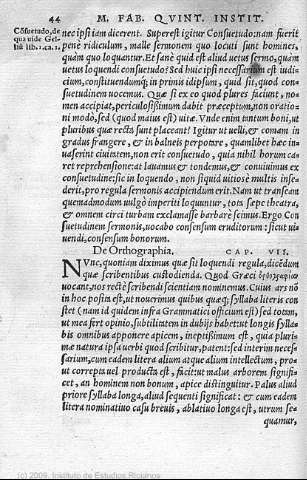 44 M. FAB. QVINT. INSTIT.
Cōsuetudo, de
qua uide Gel-
liū lib. 12. ca. 11.
nec ipsi iam dicerent. Superest igitur Consuetudo: nam fuerit
penè ridiculum, malle sermonem quo locuti sunt homines,
quàm quo loquantur. Et sanè quid est aliud uetus sermo, quàm
uetus loquendi consuetudo? Sed huic ipsi necessarium est iudi-
cium, constituendumq́; in primis idipsum, quid sit, quod con-
suetudinem uocemus. Quæ si ex eo quod plures faciunt, no-
men accipiat, periculosissimum dabit præceptum, non oratio-
ni modò, sed (quod maius est) uitæ. Vnde enim tantum boni, ut
pluribus quæ recta sunt placeant? Igitur ut uelli, & comam in
gradus frangere, & in balneis perpotare, quamlibet hæc in-
uaserint ciuitatem, non erit consuetudo, quia nihil horum ca-
ret reprehensione: at lauamur & tondemur, & conuiuimus ex
consuetudine: sic in loquendo, non si quid uitiosè multis inse-
derit, pro regula sermonis accipiendum erit. Nam ut transeam
quemadmodum uulgò imperiti loquuntur, tota sæpe theatra,
& omnem circi turbam exclamasse barbarè scimus. Ergo Con-
suetudinem sermonis, uocabo consensum eruditorum: sicut ui-
uendi, consensum bonorum.
De Orthographia, CAP. VII.
NVnc, quoniam diximus quæ sit loquendi regula, dicēdum
quæ scribentibus custodienda. Quod Græci ὀρθογραφίαν
uocant, nos rectè scribendi scientiam nominemus. Cuius ars nō
in hoc posita est, ut nouerimus quibus quæq; syllaba literis con
stet (nam id quidem infra Grammatici officium est) sed totam,
ut mea fert opinio, subtilitatem in dubijs habet: ut longis sylla-
bis omnibus apponere apicem, ineptissimum est, quia pluri-
mæ natura ipsa uerbi quod scribitur, patent: sed interim neces-
sarium, cum eadem litera alium atque alium intellectum, pro-
ut correpta uel producta est, facit: ut malus arborem signifi-
cet, an hominem non bonum, apice distinguitur. Palus aliud
priore syllaba longa, aliud sequenti significat: & cum eadem
litera nominatiuo casu breuis, ablatiuo longa est, utrum se-
quamur,
(c) 2009, Instituto de Estudios Riojanos